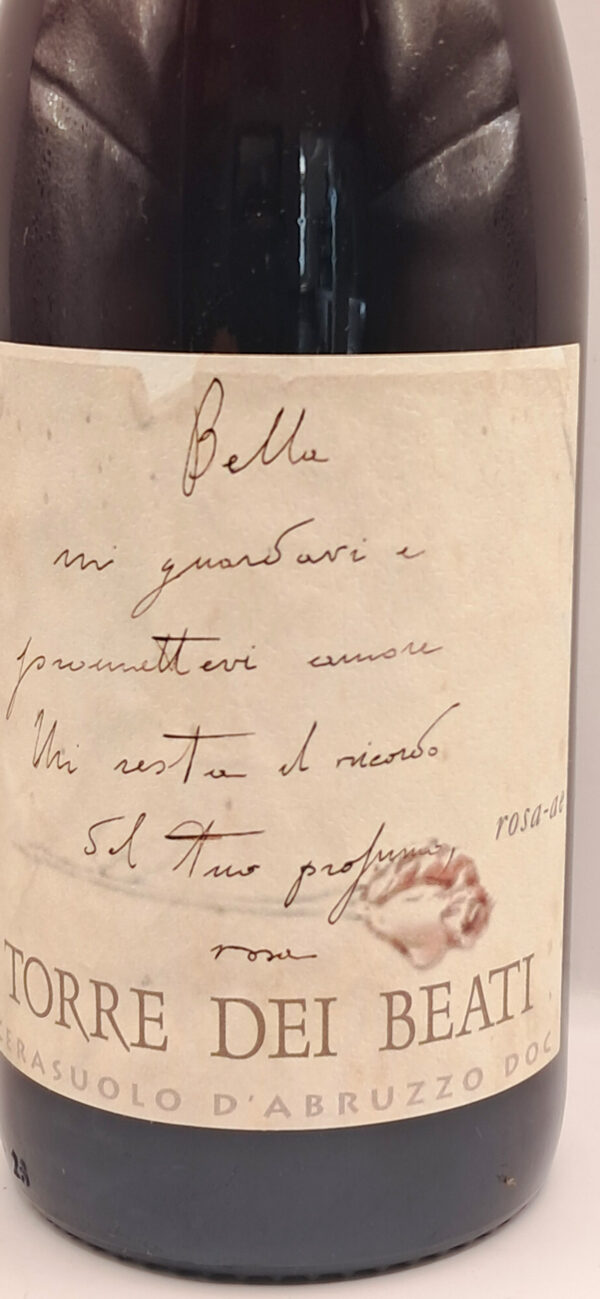 Bella
mi guardavi e
promettevi amore
Mi resta il ricordo
del tuo profumo,
rosa-ae
rosa
TORRE DEI BEATI
CERASUOLO D'ABRUZZO DOC